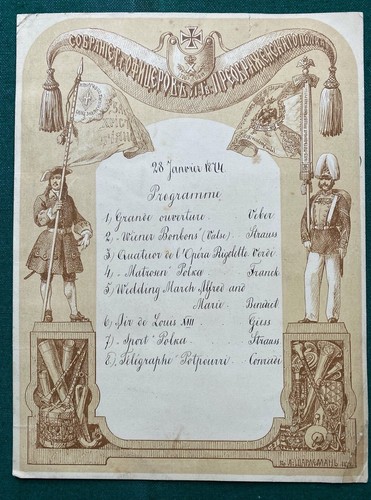 СОБРАНІЕ Г.г. ОФИЦЕРОВЪ Л. Гв. ПРЕОБРАЖЕНСКАГО ПОЛКА
28 Janvier 1874
Programme
1) Grande ouverture. Veber
2) „Wiener Bonbons" (Valse) Strauss
3) Quatuor de l'Opéra Rigoletto Verdi
4) „Matrosen" Polka Franck
5) Wedding March Alfred and
Marie Bennet
6) Air de Louis XIII Geiss
7) „Sport" Polka Strauss
8) „Télégraphe" Potpourri Conradi